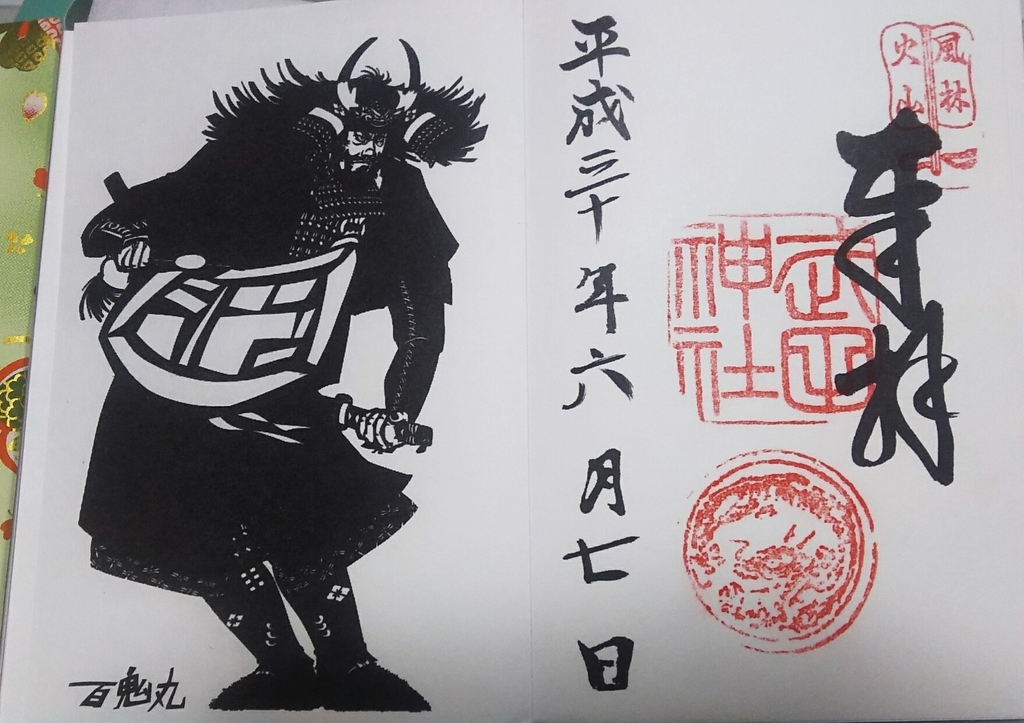 風林
火山
奉拝
武田
神社
平成三十年六月七日
百鬼丸